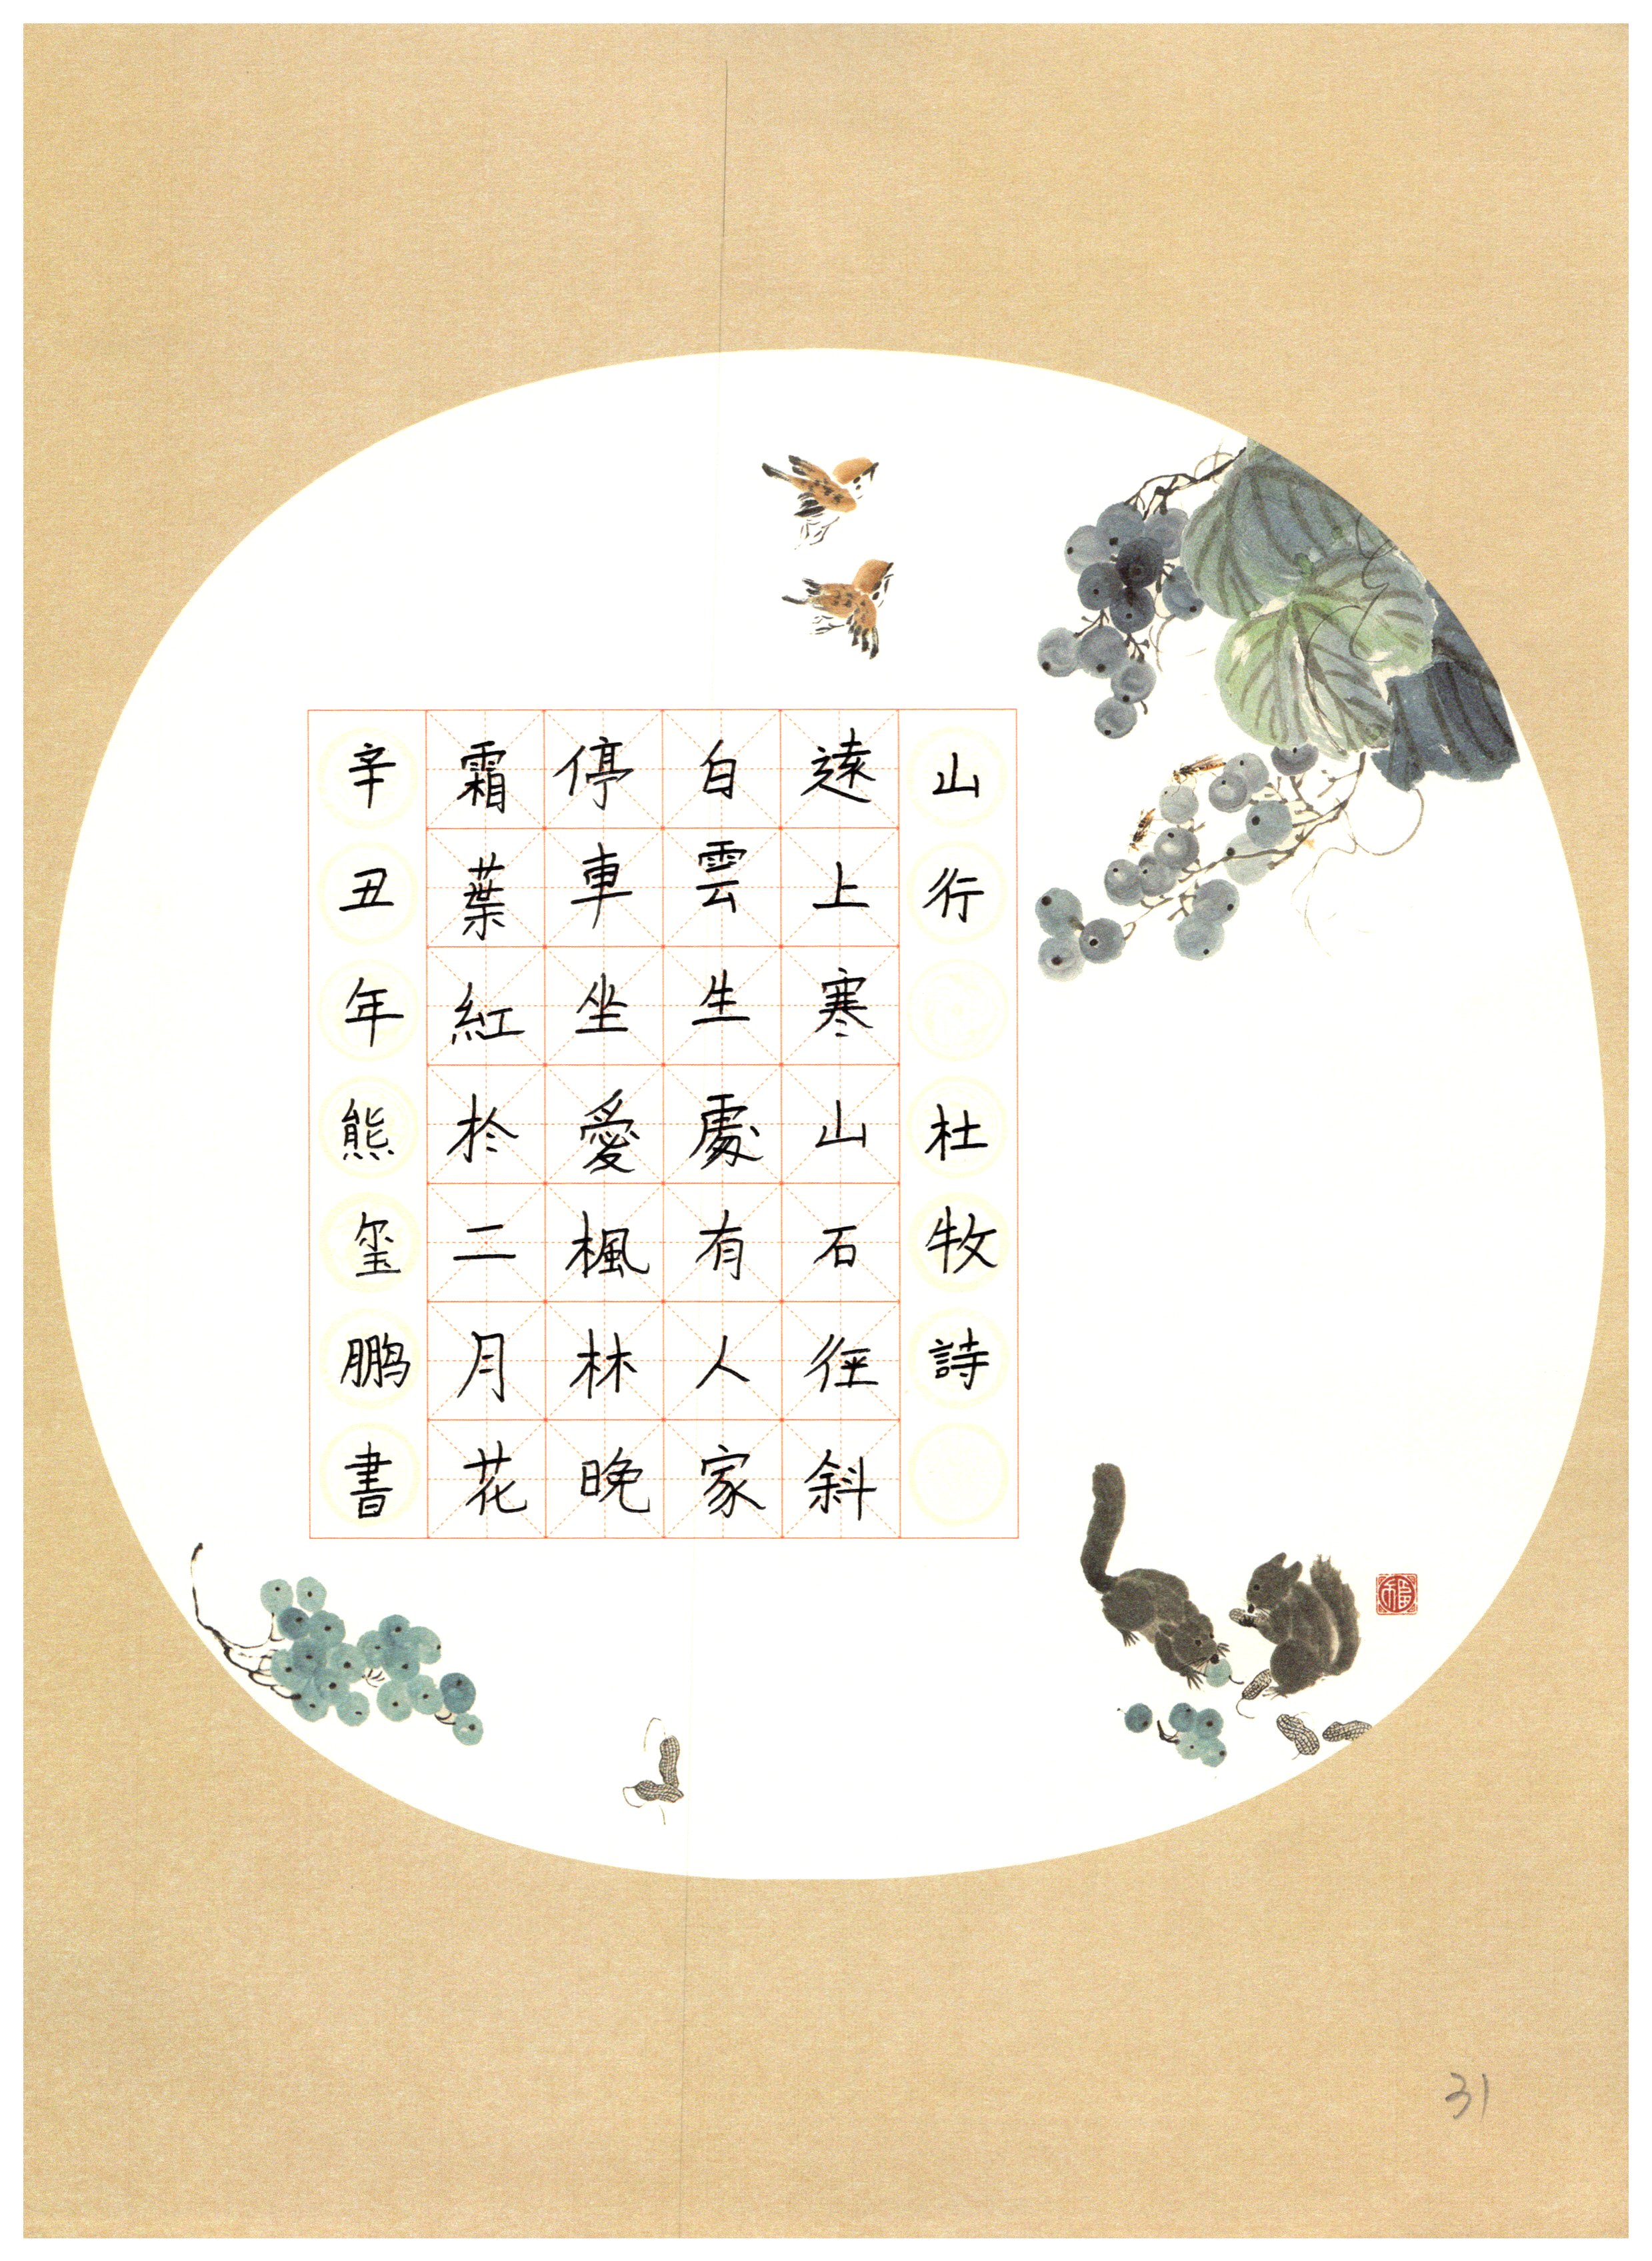 山行 杜牧詩
遠上寒山石徑斜
白雲生處有人家
停車坐愛楓林晚
霜葉紅於二月花
辛丑年熊玺鹏書
福
31